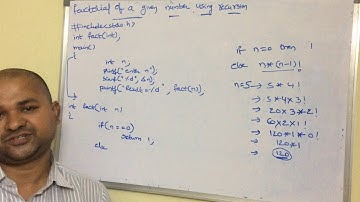 factorial of a given number using recursion
#include<stdio.h>
int fact(int);
main()
{
int n;
printf("enter n");
scanf("%d", &n);
printf("Result=%d", fact(n));
}
int fact(int n)
{
if(n==0)
return 1;
else
if n=0 then 1
else n*(n-1)!
n=5 → 5*4!
→ 5*4*3!
→ 20*3*2!
→ 60*2*1!
→ 120*1*0!
→ 120*1
→ 120